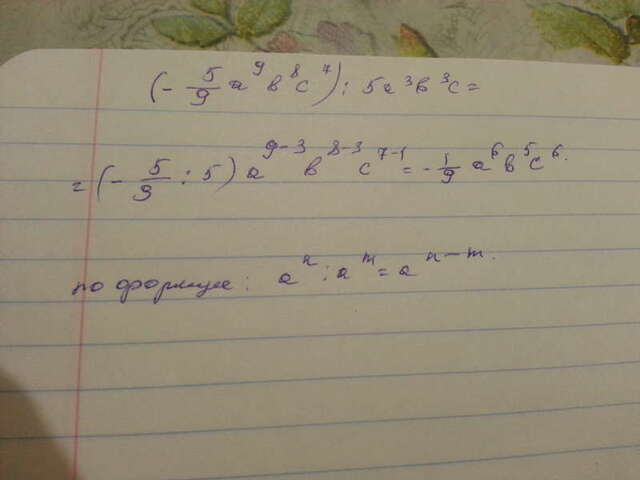 (- 5/9 a⁹ в⁸ c⁷) : 5a³в³c =
= (- 5/9 : 5) a⁹⁻³ в⁸⁻³ c⁷⁻¹ = - 1/9 a⁶ в⁵ c⁶.
по формуле: aⁿ : aᵐ = aⁿ⁻ᵐ.